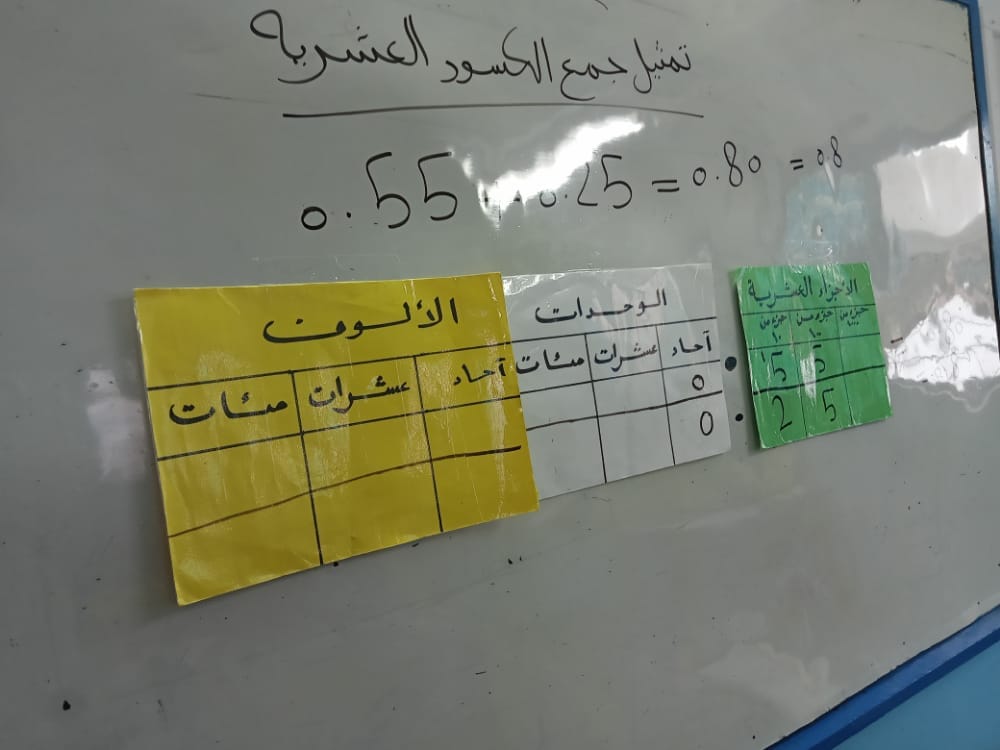 تمثيل جمع الكسور العشرية
0.55 + 0.25 = 0.80 = 0.8
الألوف
مئات عشرات آحاد
الوحدات
مئات عشرات آحاد
0
0
الأجزاء العشرية
جزء من ١٠ جزء من ١٠٠ جزء من
5 5
2 5